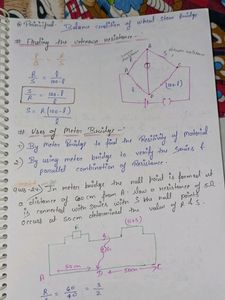 Principal - Balance condition of wheat stone bridge
Finding the unknown resistance -
R/S = l/(100-l)
S/R = (100-l)/l
S = R(100-l)/l
(100-l)
Uses of Meter Bridge -
1) By Meter Bridge to find the Resistivity of Material
2) By using meter bridge to verify the series &
parallel combination of Resistance.
In meter bridge the null point is formed at
a distance of 60cm from A. Now a resistance of 5Ω
is connected with series with S the null point
occurs at 50cm determined the value of R & S.
R
(S+5)
G
A
50cm
D
50cm
R/S = 60/40 = 3/2